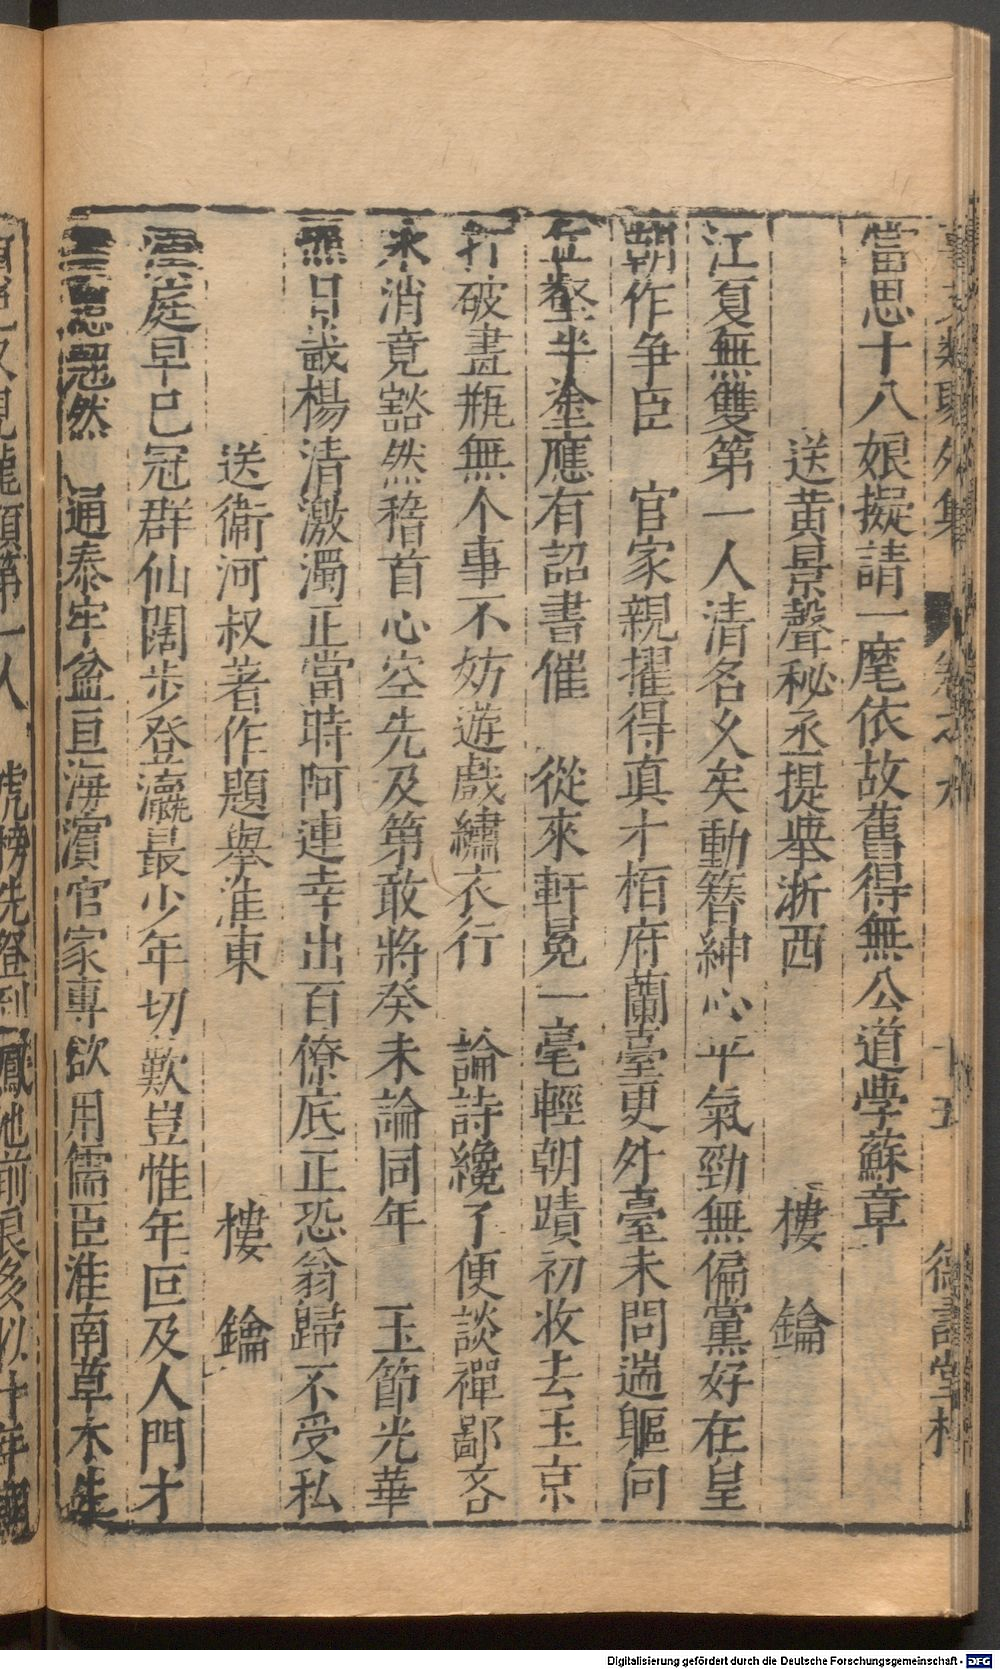 事文類聚外集 卷之九 十五 德壽堂梓
當思十八娘擬請一麾依故舊得無公道學蘇章
送黄景聲秘丞提舉浙西 樓鑰
江夏無雙第一人清名久矣動簪紳心平氣勁無偏黨好在皇
朝作争臣 官家親擢得真才栢府蘭臺更外臺未問遄軀向
半塗應有詔書催 從來軒冕一毫輕朝蹟初收去玉京
打破畫瓶無个事不妨遊戲繡衣行 論詩纔了便談禪鄙吝
氷消竟豁然稽首心空先及第敢將癸未論同年 玉節光華
無日識楊清激濁正當時阿連幸出百僚底正恐翁歸不受私
送衞河叔著作題舉淮東 樓鑰
庭早已冠群仙闊步登瀛最少年切歎豈惟年叵及人門才
冠然 通泰牢盆亘海濵官家專欲用儒臣淮南草木
見龍頭第一人 虎榜先登到鳳池前
Digitalisierung gefördert durch die Deutsche Forschungsgemeinschaft - DFG